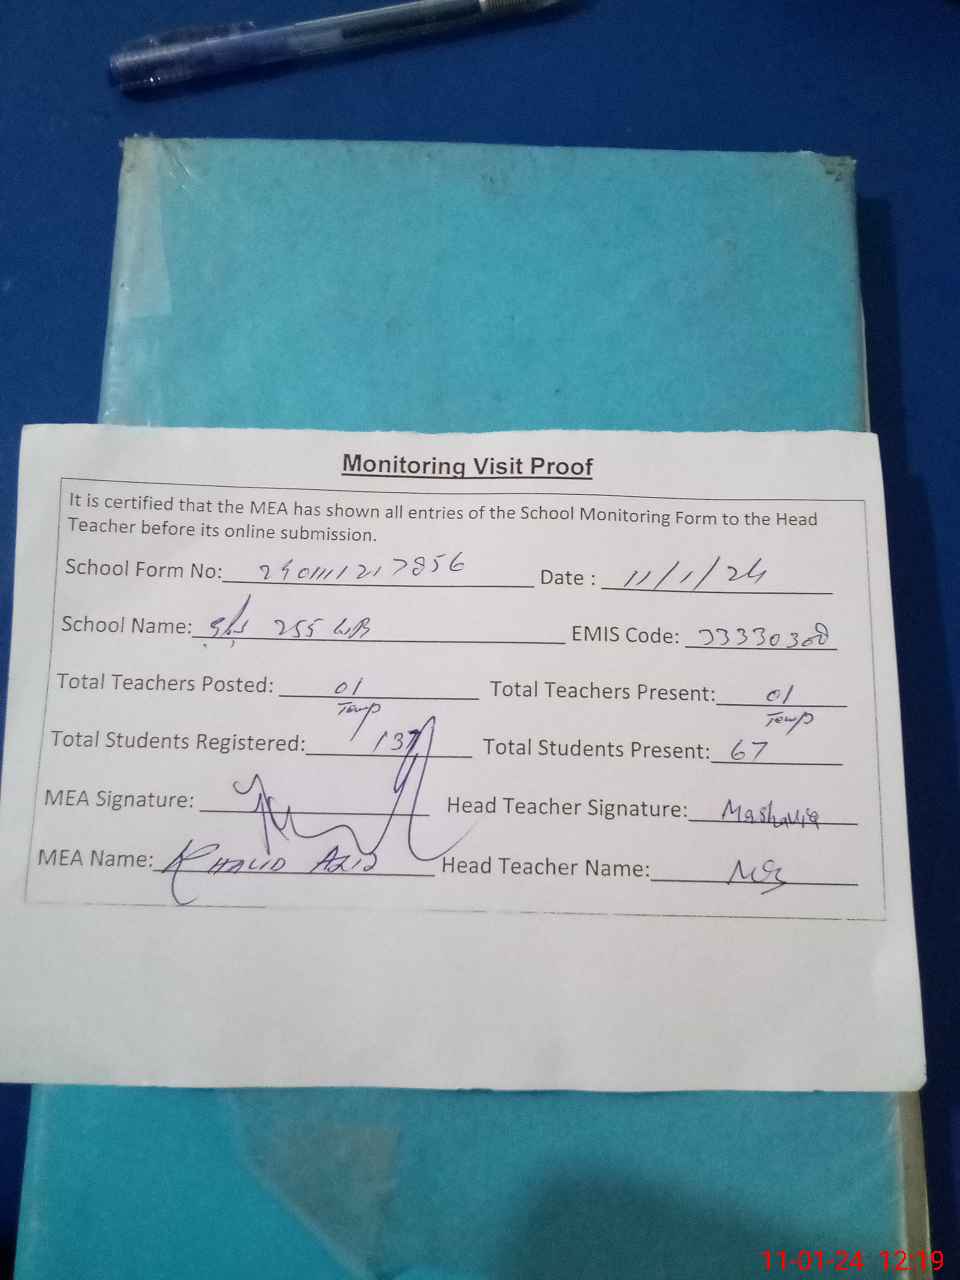 Monitoring Visit Proof
It is certified that the MEA has shown all entries of the School Monitoring Form to the Head
Teacher before its online submission.
School Form No: 2401111217856 Date : 11/1/24
School Name: 255 W/B EMIS Code: 33330308
Total Teachers Posted: 01 Total Teachers Present: 01
Temp Temp
Total Students Registered: 137 Total Students Present: 67
MEA Signature: Head Teacher Signature:
MEA Name: KHALID AZIZ Head Teacher Name:
11-01-24 12:19